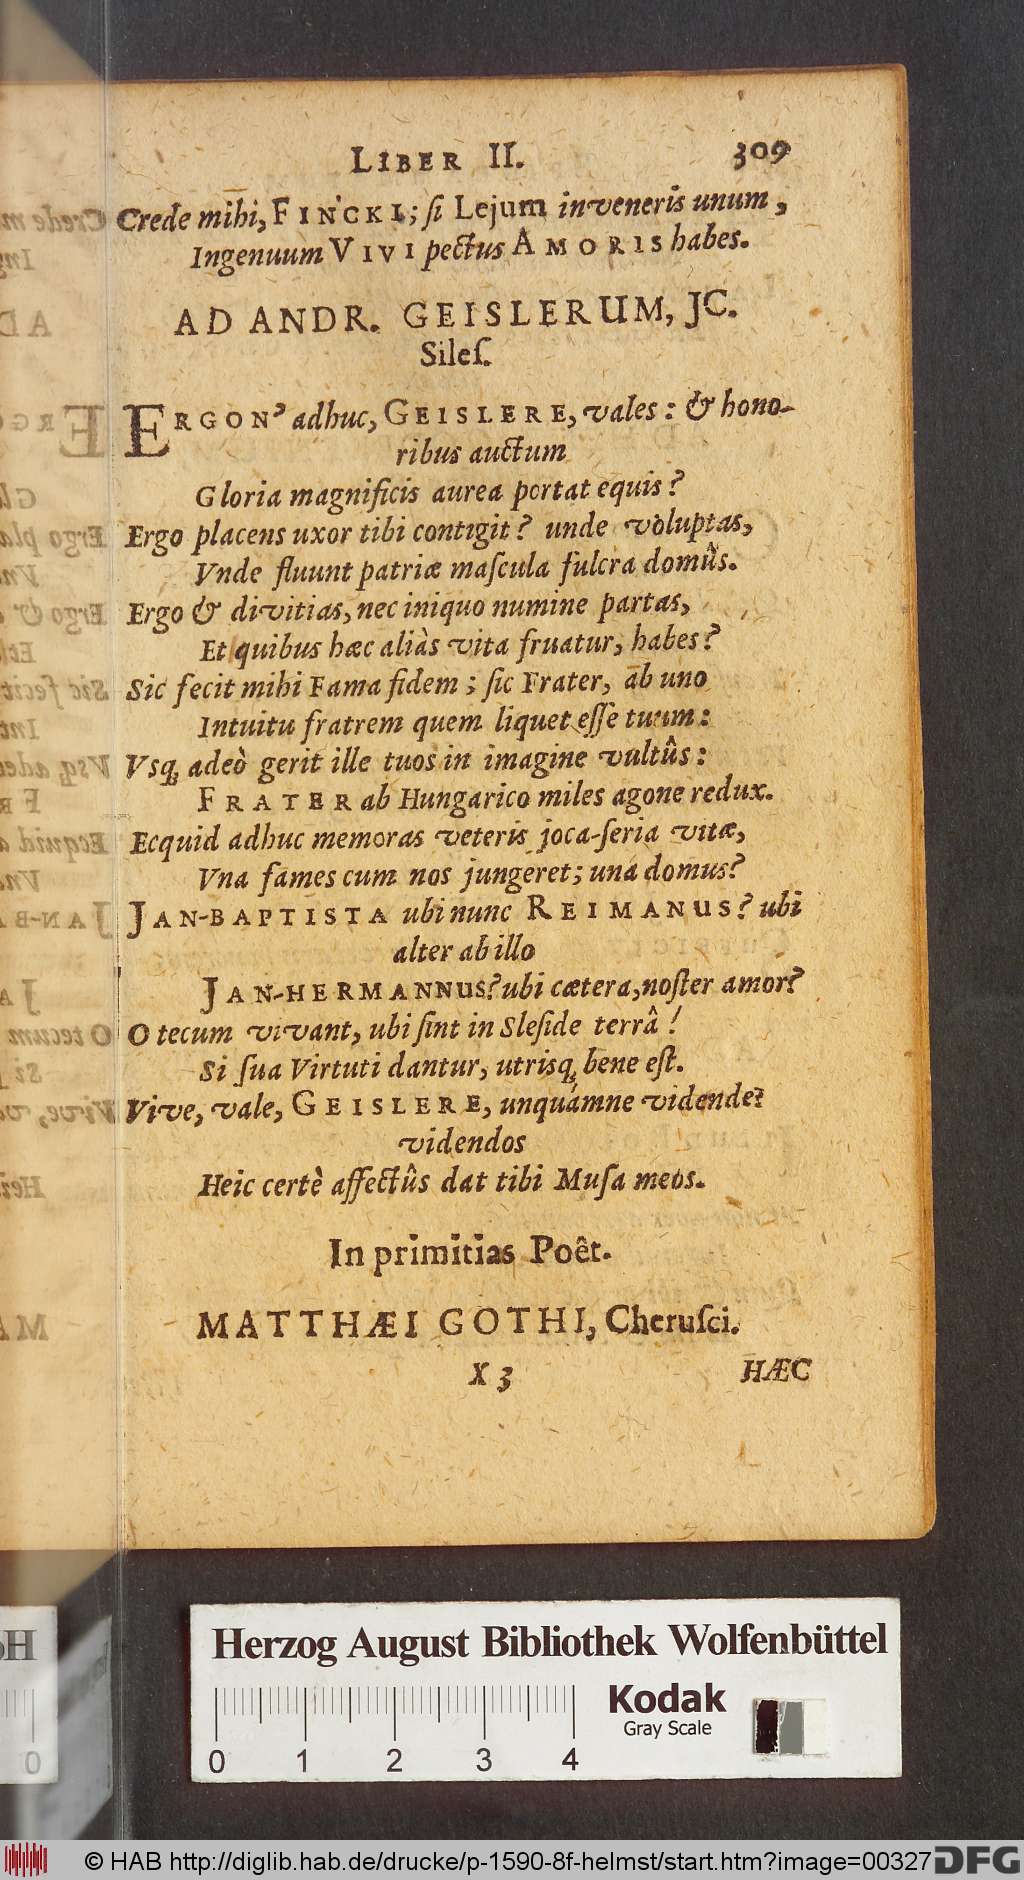 LIBER II. 309
Crede mihi, FINCKI; ſi Lejum inveneris unum,
Ingenuum VIVI pectus AMORIS habes.
AD ANDR. GEISLERUM, JC.
Sileſ.
ERGON' adhuc, GEISLERE, vales: & hono-
ribus auctum
Gloria magnificis aurea portat equis?
Ergo placens uxor tibi contigit? unde voluptas,
Vnde fluunt patriæ maſcula fulcra domûs.
Ergo & divitias, nec iniquo numine partas,
Et quibus hæc aliàs vita fruatur, habes?
Sic fecit mihi Fama fidem; ſic Frater, ab uno
Intuitu fratrem quem liquet eſſe tuum:
Vsq; adeò gerit ille tuos in imagine vultûs:
FRATER ab Hungarico miles agone redux.
Ecquid adhuc memoras veteris joca-ſeria vitæ,
Vna fames cum nos jungeret; una domus?
JAN-BAPTISTA ubi nunc REIMANUS? ubi
alter ab illo
JAN-HERMANNUS? ubi cætera, noſter amor?
O tecum vivant, ubi ſint in Sleſide terrâ!
Si ſua Virtuti dantur, utrisq; bene eſt.
Vive, vale, GEISLERE, unquámne vidende?
videndos
Heic certè affectûs dat tibi Muſa meos.
In primitias Poêt.
MATTHÆI GOTHI, Cheruſci.
X 3 HÆC
Herzog August Bibliothek Wolfenbüttel
Kodak
Gray Scale
0 1 2 3 4
© HAB http://diglib.hab.de/drucke/p-1590-8f-helmst/start.htm?image=00327
DFG